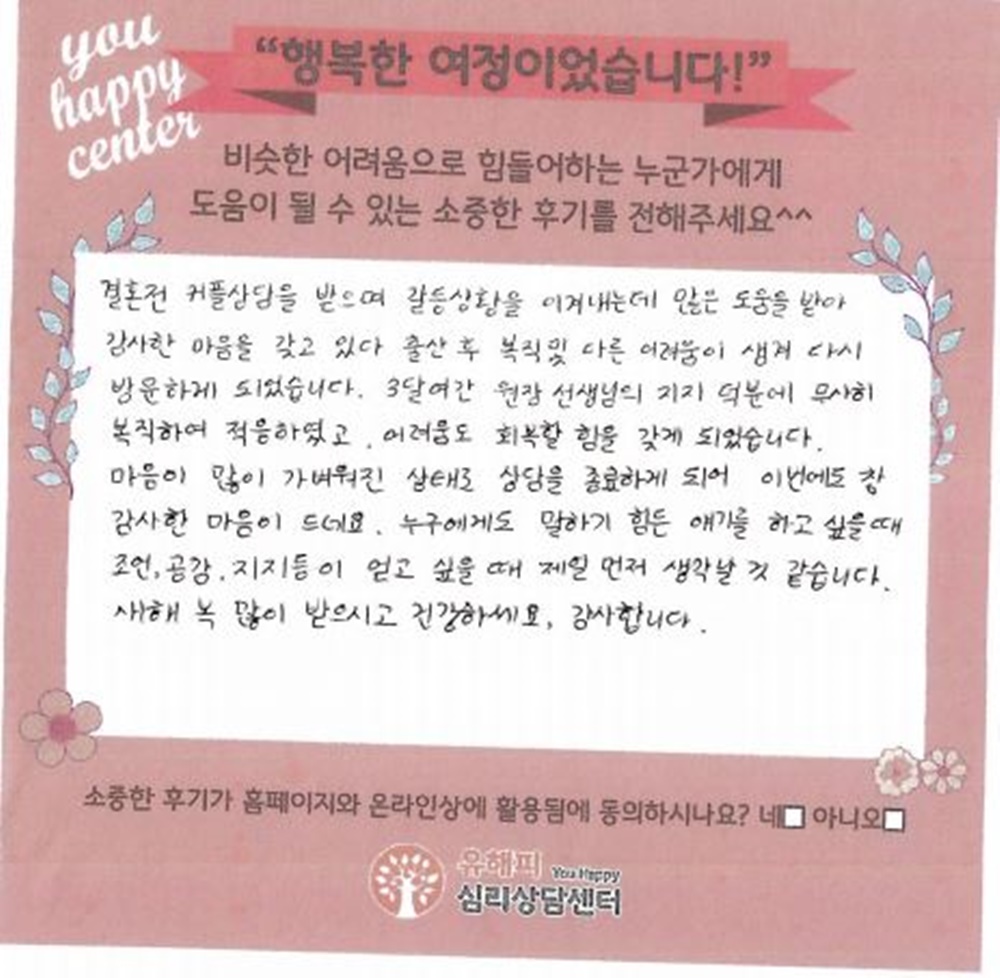 you
happy
center
“행복한 여정이었습니다!”
비슷한 어려움으로 힘들어하는 누군가에게
도움이 될 수 있는 소중한 후기를 전해주세요^^
결혼전 커플상담을 받으며 갈등상황을 이겨내는데 많은 도움을 받아
감사한 마음을 갖고 있다 출산 후 복직및 다른 어려움이 생겨 다시
방문하게 되었습니다. 3달여간 원장 선생님의 지지 덕분에 무사히
복직하여 적응하였고, 어려움도 회복할 힘을 갖게 되었습니다.
마음이 많이 가벼워진 상태로 상담을 종료하게 되어 이번에도 참
감사한 마음이 드네요. 누구에게도 말하기 힘든 얘기를 하고 싶을때
조언, 공감, 지지등이 얻고 싶을 때 제일 먼저 생각날 것 같습니다.
새해 복 많이 받으시고 건강하세요, 감사합니다.
소중한 후기가 홈페이지와 온라인상에 활용됨에 동의하시나요? 네□ 아니오□
유해피 You Happy
심리상담센터